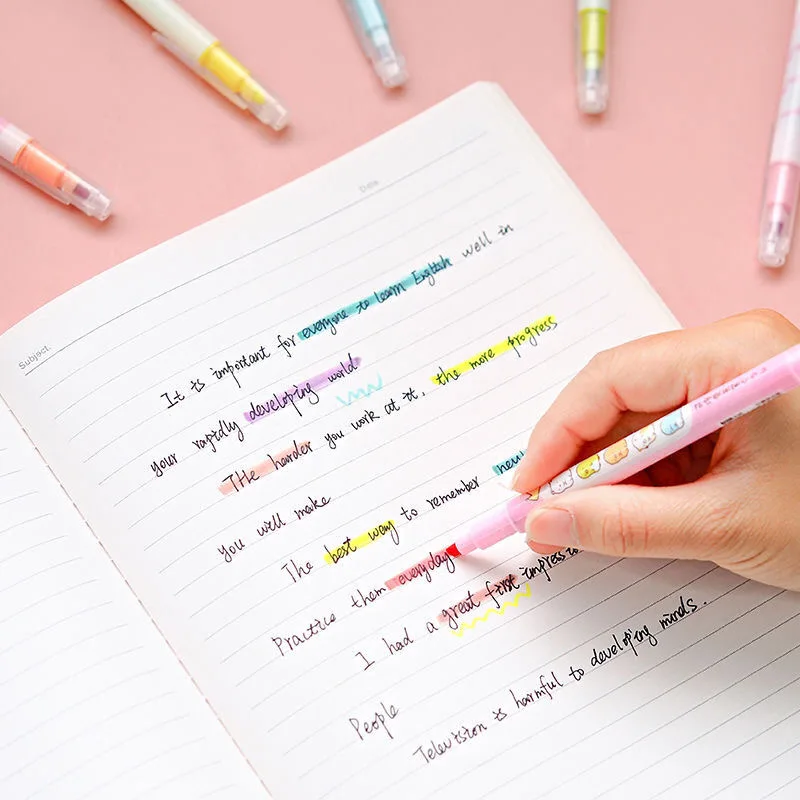 Date.
Subject.
It is important for everyone to learn English well in
your rapidly developing world
THe harder you work at it, the more progress
you will make
The best way to remember new
Practice them everyday
I had a great first impress
People
Television is harmful to developing minds.